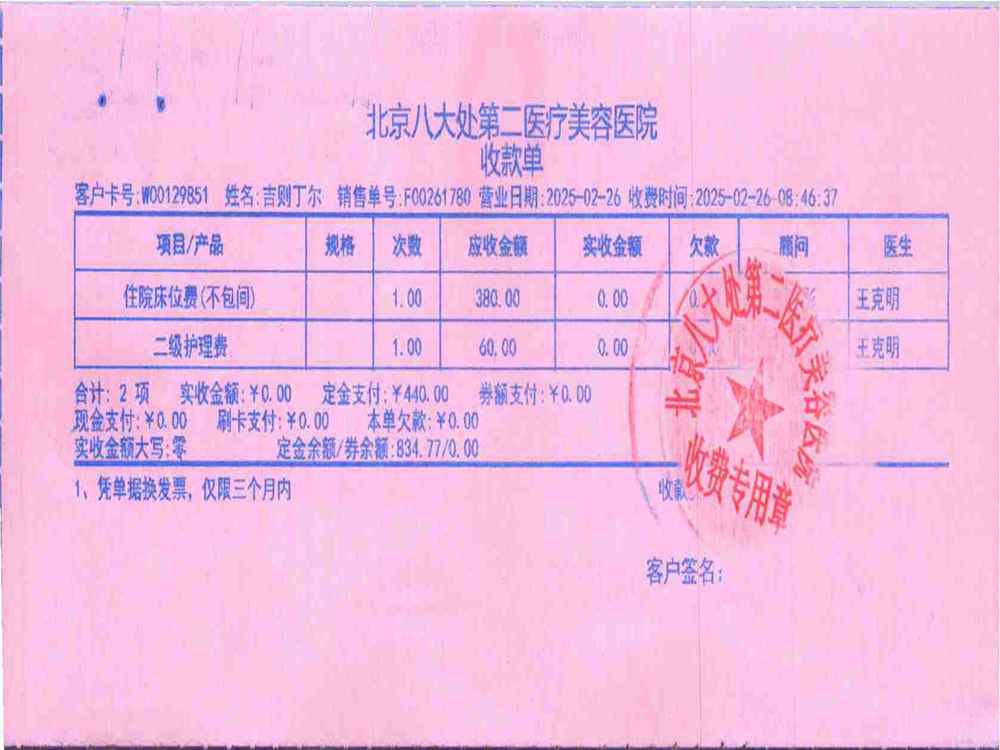 北京八大处第二医疗美容医院
收款单
客户卡号:W00129851 姓名:吉则丁尔 销售单号:F00261780 营业日期:2025-02-26 收费时间:2025-02-26 08:46:37
项目/产品 规格 次数 应收金额 实收金额 欠款 顾问 医生
住院床位费(不包间) 1.00 380.00 0.00 王克明
二级护理费 1.00 60.00 0.00 王克明
合计: 2 项 实收金额:¥0.00 定金支付:¥440.00 券额支付:¥0.00
现金支付:¥0.00 刷卡支付:¥0.00 本单欠款:¥0.00
实收金额大写:零 定金余额/券余额:834.77/0.00
1、凭单据换发票，仅限三个月内 收款
客户签名:
北京八大处第二医疗美容医院
收费专用章